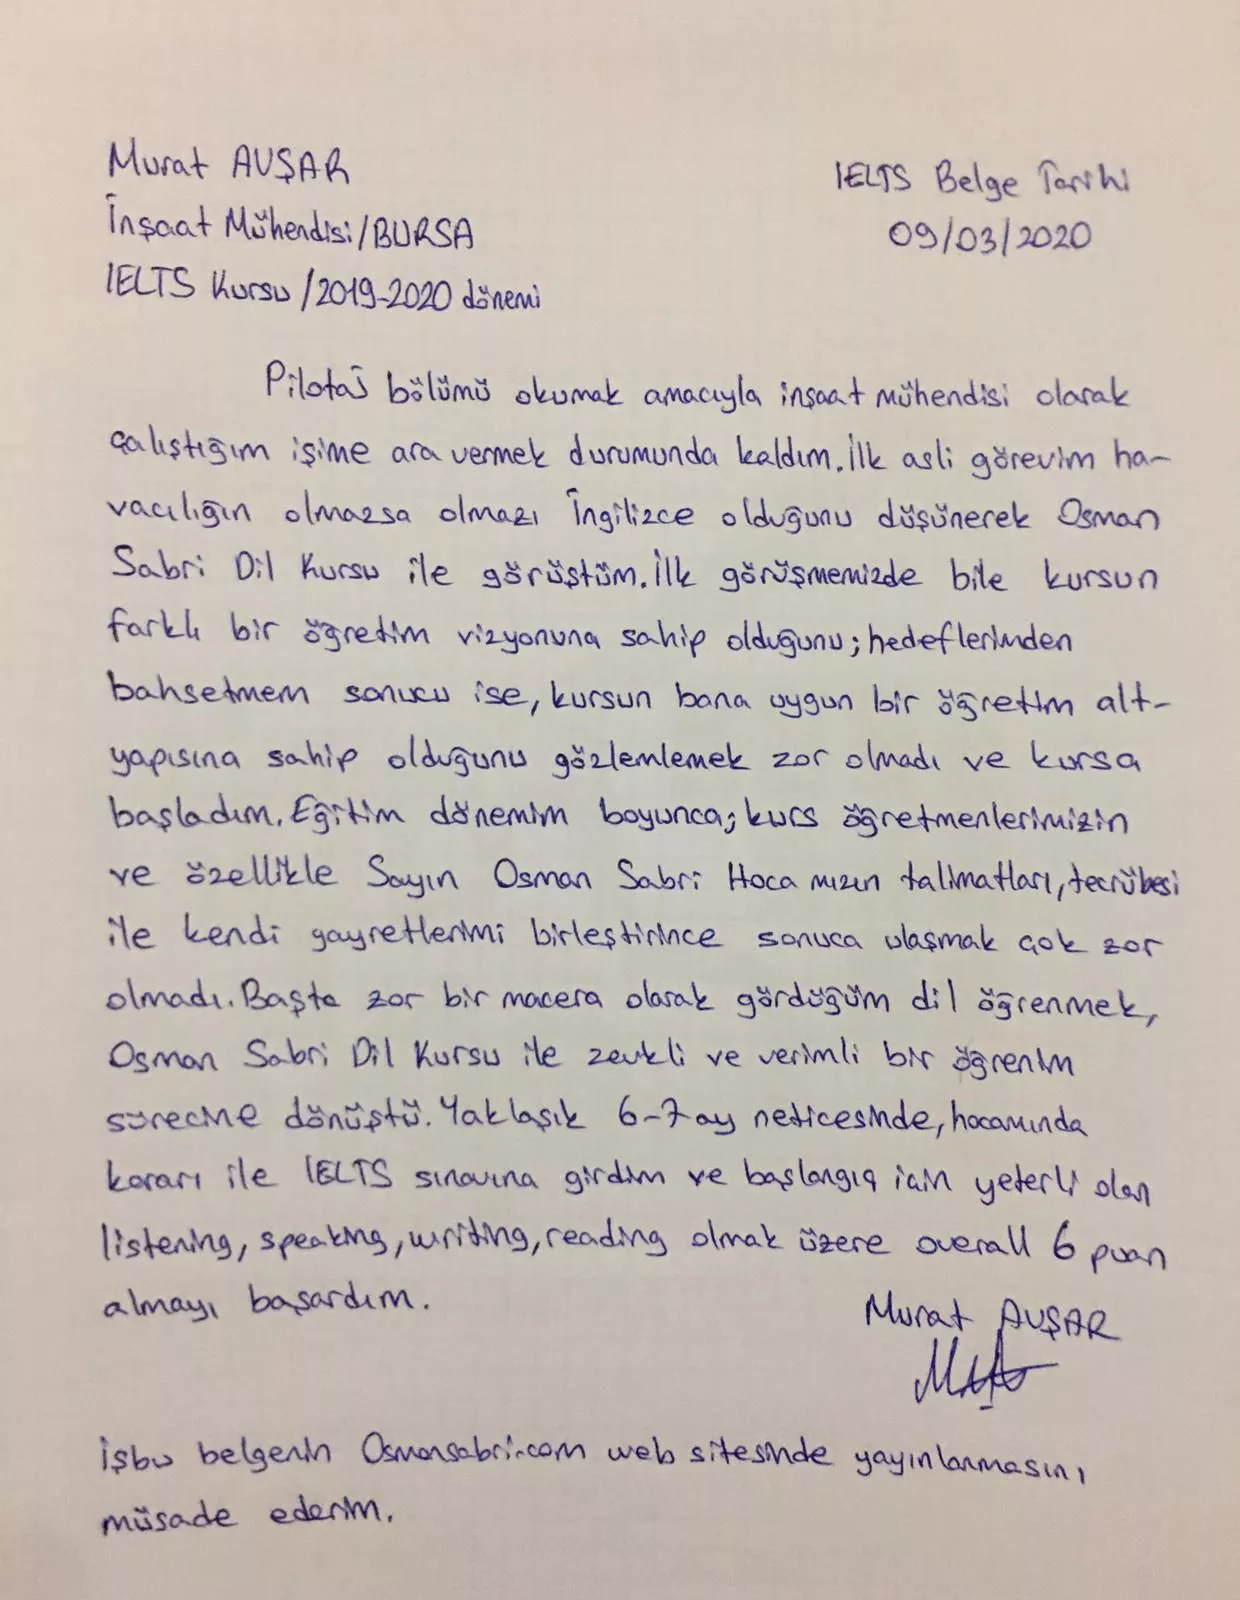 Murat AVŞAR
IELTS Belge Tarihi
İnşaat Mühendisi/BURSA
09/03/2020
IELTS Kursu/2019-2020 dönemi
Pilotaj bölümü okumak amacıyla inşaat mühendisi olarak
çalıştığım işime ara vermek durumunda kaldım. İlk asli görevim ha-
vacılığın olmazsa olmazı İngilizce olduğunu düşünerek Osman
Sabri Dil Kursu ile görüştüm. İlk görüşmemizde bile kursun
farklı bir öğretim vizyonuna sahip olduğunu; hedeflerimden
bahsetmem sonucu ise, kursun bana uygun bir öğretim alt-
yapısına sahip olduğunu gözlemlemek zor olmadı ve kursa
başladım. Eğitim dönemim boyunca; kurs öğretmenlerimizin
ve özellikle Sayın Osman Sabri Hocamızın talimatları, tecrübesi
ile kendi gayretlerimi birleştirince sonuca ulaşmak çok zor
olmadı. Başta zor bir macera olarak gördüğüm dil öğrenmek,
Osman Sabri Dil Kursu ile zevkli ve verimli bir öğrenim
sürecine dönüştü. Yaklaşık 6-7 ay neticesinde, hocamında
kararı ile IELTS sınavına girdim ve başlangıç için yeterli olan
listening, speaking, writing, reading olmak üzere overall 6 puan
almayı başardım.
Murat AVŞAR
işbu belgenin Osmansabri.com web sitesinde yayınlanmasını
müsade ederim.